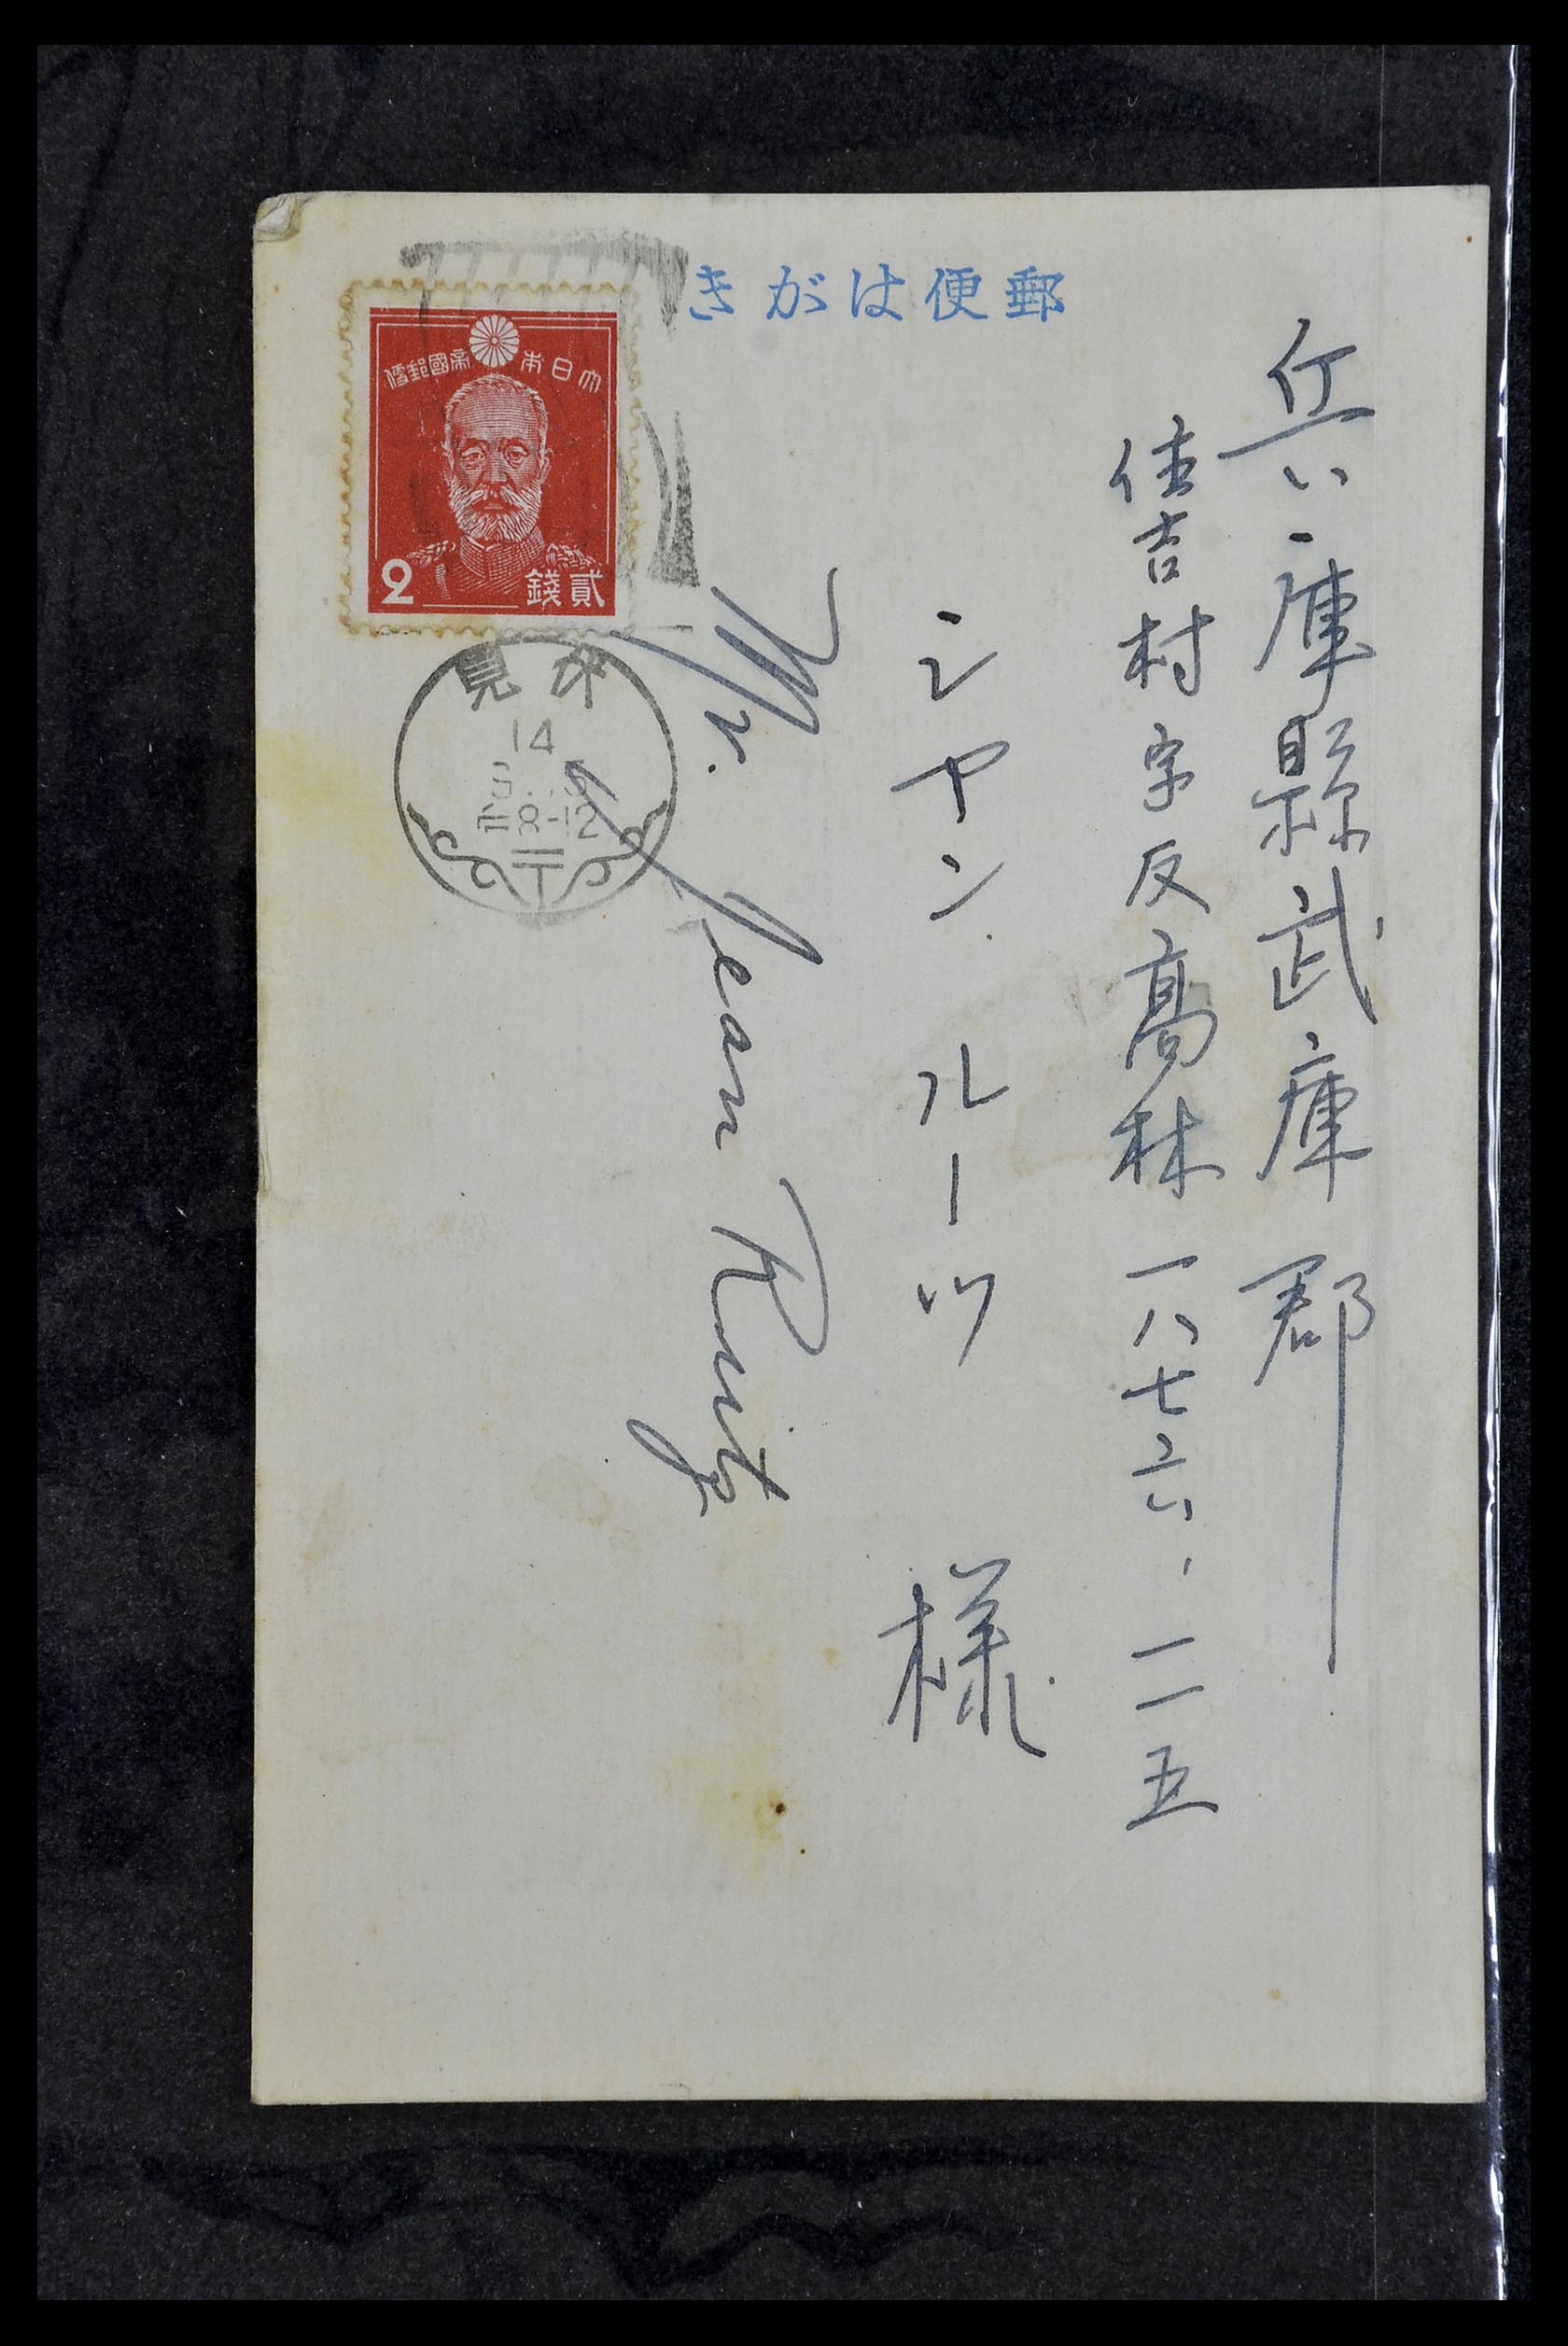 郵便はがき
兵庫縣武庫郡
住吉村字反高林一八七六、一一五
シヤン ルーツ 様
Mr. Jean Ruitz
大日本帝國郵便
2 貳錢
14
8-12